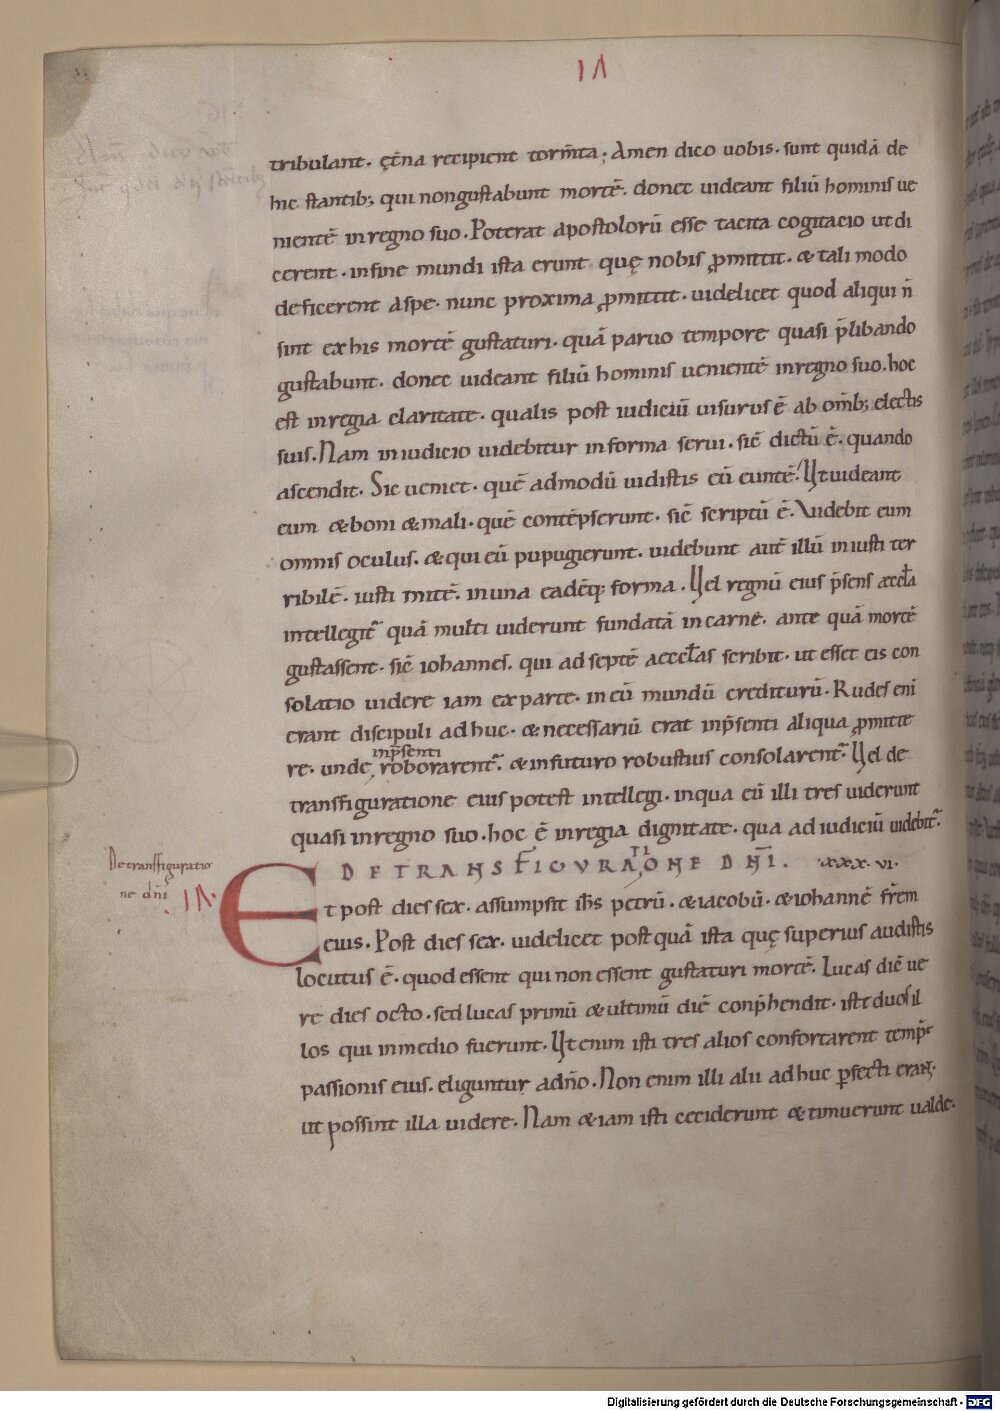 tribulant. ęt̄na recipient torm̄ta; Amen dico uobis. sunt quidā de
hic stantib; qui non gustabunt mortē. donec uideant filiū hominis ue
nientē in regno suo. Poterat apostolorū esse tacita cogitacio ut di
cerent. in fine mundi ista erunt quę nobis ꝓmittit. & tali modo
deficerent a spe. nunc proxima ꝓmittit. uidelicet quod aliqui n̄
sint ex his mortē gustaturi. quā paruo tempore quasi p̄libando
gustabunt. donec uideant filiū hominis uenientē in regno suo. hoc
est in regia claritate. qualis post iudiciū uisurus ē ab om̄b; electis
suis. Nam in iudicio uidebitur in forma serui. sic̄ dictū ē. quando
ascendit. Sic ueniet. quē admodū uidistis eū euntē. Ut uideant
eum & boni & mali. quē contēpserunt. sic̄ scriptū ē. Videbit eum
omnis oculus. & qui eū pupugierunt. uidebunt aut̄ illū iniusti ter
ribilē. iusti mitē. in una eadēq; forma. Vel regnū eius p̄sens æccl̄a
intellegit̄ quā multi uiderunt fundatā in carne. ante quā mortē
gustassent. sic̄ iohannes. qui ad septē aeccl̄as scribit. ut esset eis con
solatio uidere iam ex parte. in eū mundū crediturū. Rudes eni
erant discipuli ad huc. & necessariū erat inp̄senti aliqua ꝓmitte
inp̄senti
re. unde roborarent̄. & in futuro robustius consolarent̄. Vel de
transfiguratione eius potest intellegi. in qua eū illi tres uiderunt
quasi in regno suo. hoc ē in regia dignitate. qua ad iudiciū uidebit̄.
De transfiguratio
ne dn̄i
DE TRANSFIGVRATIONE DN̄I. .xxx.vi.
Et post dies sex. assumpsit ih̄s petrū. & iacobū. & iohannē fr̄em
eius. Post dies sex. uidelicet post quā ista quę superius audistis
locutus ē. quod essent qui non essent gustaturi mortē. Lucas dic̄ ue
re dies octo. sed lucas primū & ultimū diē conp̄hendit. iste duos il
los qui in medio fuerunt. Ut enim isti tres alios confortarent temp̄e
passionis eius. eliguntur a dn̄o. Non enim illi alii ad huc ꝑfecti erant.
ut possint illa uidere. Nam & iam isti ceciderunt & timuerunt ualde.
Digitalisierung gefördert durch die Deutsche Forschungsgemeinschaft - DFG